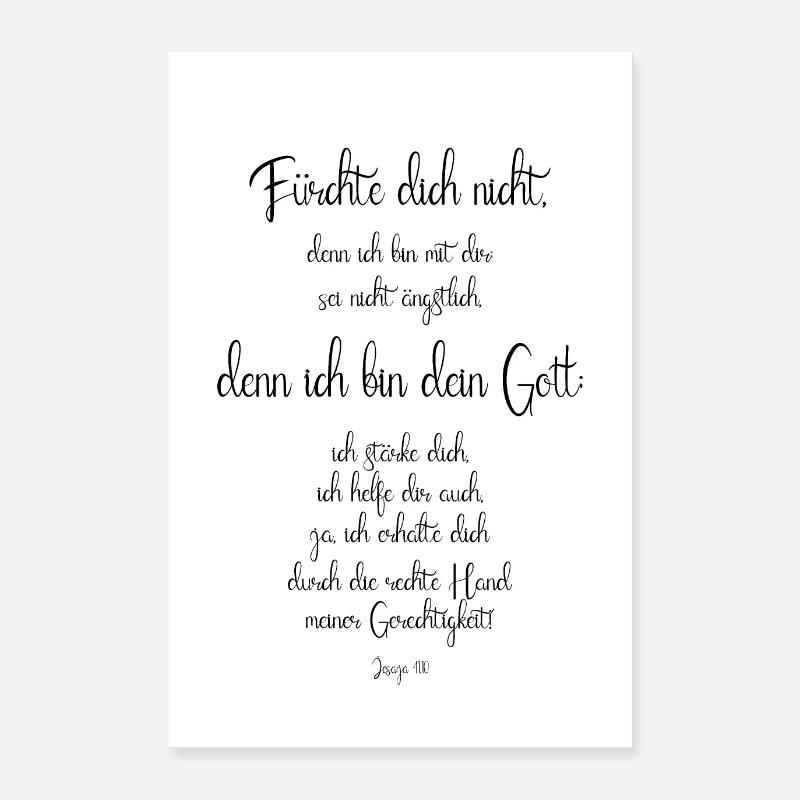 Fürchte dich nicht,
denn ich bin mit dir;
sei nicht ängstlich,
denn ich bin dein Gott;
ich stärke dich,
ich helfe dir auch,
ja, ich erhalte dich
durch die rechte Hand
meiner Gerechtigkeit!
Jesaja